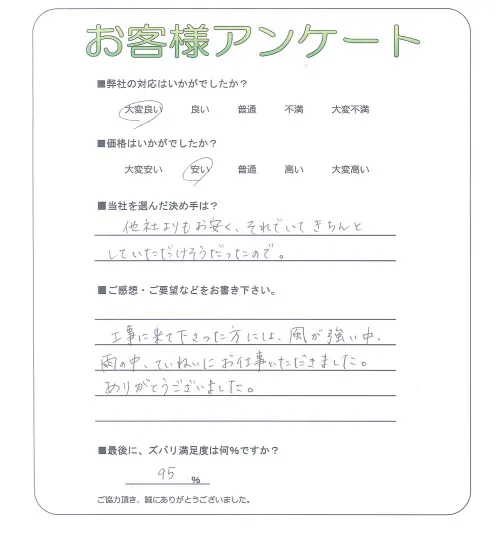 お客様アンケート
■弊社の対応はいかがでしたか?
大変良い 良い 普通 不満 大変不満
■価格はいかがでしたか?
大変安い 安い 普通 高い 大変高い
■当社を選んだ決め手は?
他社よりもお安く、それでいてきちんと
していただけそうだったので。
■ご感想・ご要望などをお書き下さい。
工事に来て下さった方には、風が強い中、
雨の中、ていねいにお仕事いただきました。
ありがとうございました。
■最後に、ズバリ満足度は何%ですか?
95 %
ご協力頂き、誠にありがとうございました。